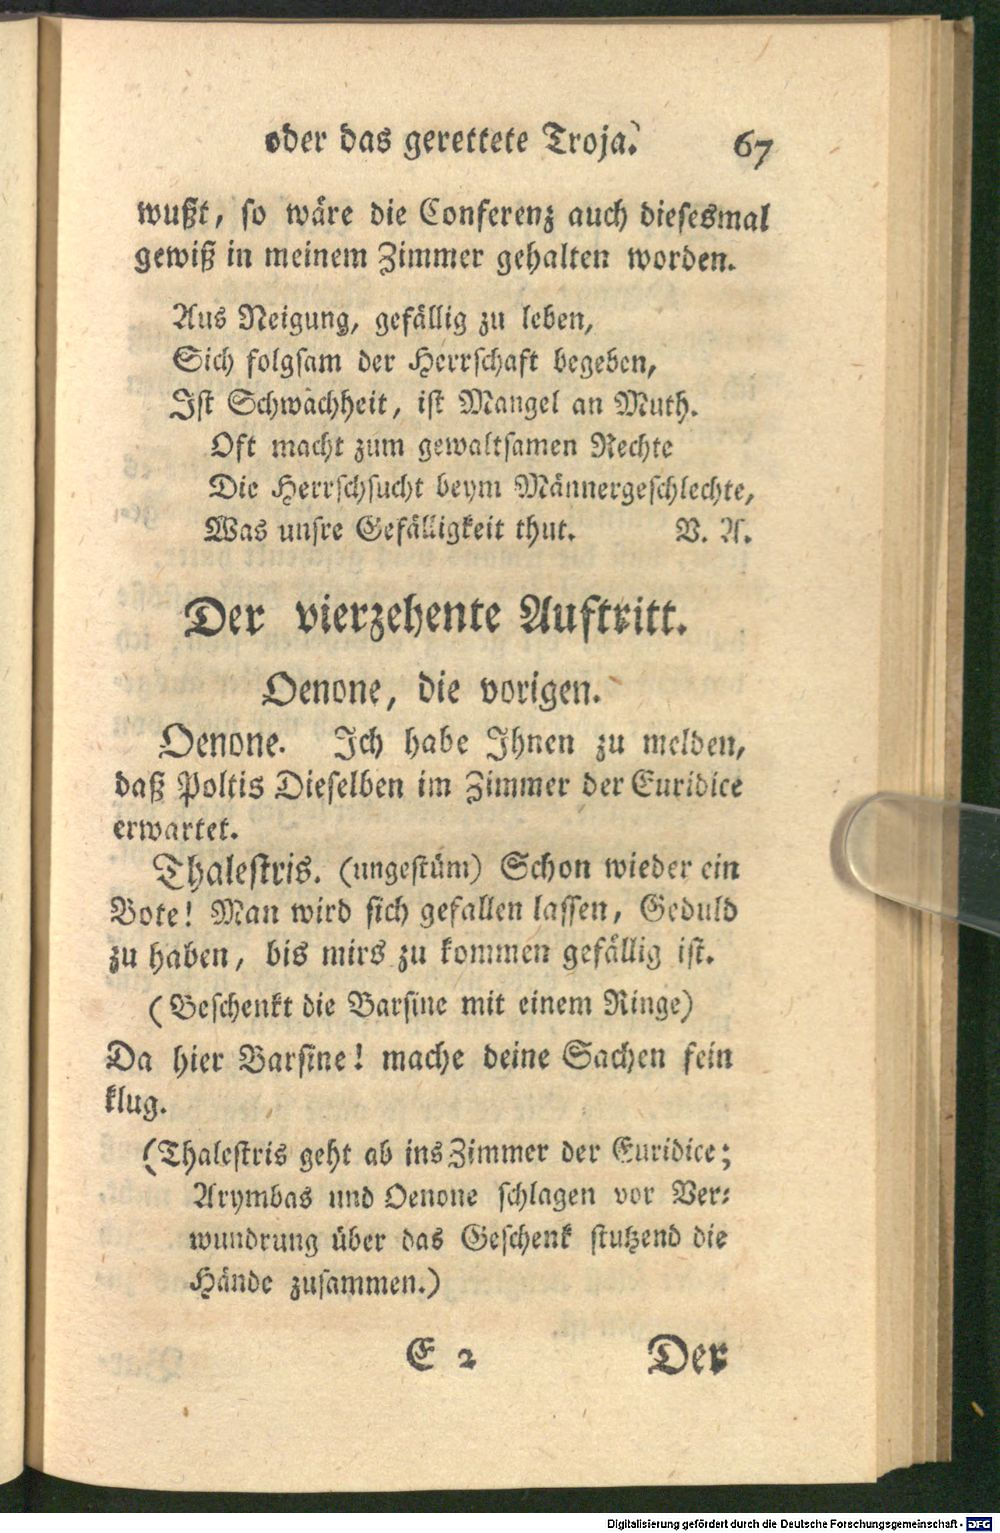 oder das gerettete Troja. 67
wußt, so wäre die Conferenz auch diesesmal
gewiß in meinem Zimmer gehalten worden.
Aus Neigung, gefällig zu leben,
Sich folgsam der Herrschaft begeben,
Ist Schwachheit, ist Mangel an Muth.
Oft macht zum gewaltsamen Rechte
Die Herrschsucht beym Männergeschlechte,
Was unsre Gefälligkeit thut. V. A.
Der vierzehente Auftritt.
Oenone, die vorigen.
Oenone. Ich habe Ihnen zu melden,
daß Poltis Dieselben im Zimmer der Euridice
erwartet.
Thalestris. (ungestüm) Schon wieder ein
Bote! Man wird sich gefallen lassen, Geduld
zu haben, bis mirs zu kommen gefällig ist.
(Beschenkt die Barsine mit einem Ringe)
Da hier Barsine! mache deine Sachen fein
klug.
(Thalestris geht ab ins Zimmer der Euridice;
Arymbas und Oenone schlagen vor Ver-
wundrung über das Geschenk stutzend die
Hände zusammen.)
E 2 Der
Digitalisierung gefördert durch die Deutsche Forschungsgemeinschaft - DFG